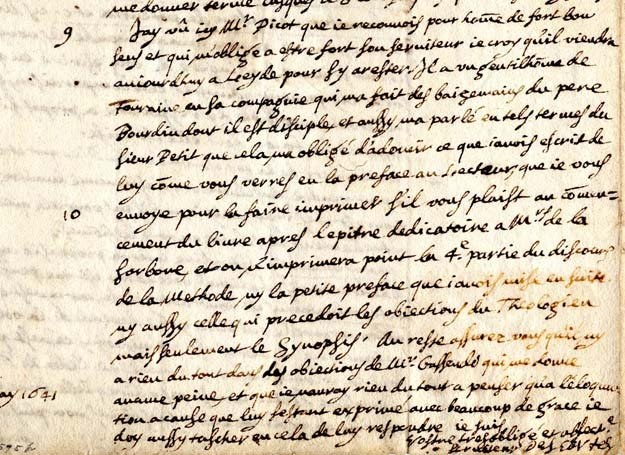 me donner terme jusques a
9 J'ay vû icy Mr Picot que ie reconnois pour home de fort bon
sens et qui m'oblige a estre fort son serviteur ie croy qu'il viendra
auiourdhuy a Leyde pour sy arester. Il a un gentilhome de
Touraine en sa compagnie qui ma fait des baizemains du pere
Bourdin dont il est disciple, et aussy ma parlé en tels termes du
sieur Petit que cela ma obligé d'adoucir ce que iauois escrit de
luy come vous verres en la preface au Lecteur, que ie vous
10 enuoye pour la faire imprimer s'il vous plaist au comen=
cement du liure apres l'epitre dedicatoire a Mrs de la
Sorbone, et on n'imprimera point la 4e partie du discours
de la Methode, ny la petite preface que i'auois mise en suite
ny aussy celle qui precedoit les obiections du Theologien
mais seulement le Synopsis. Au reste assurez vous qu'il ny
a rien du tout dans les obiections de Mr Gassendo qui me donne
aucune peine, et que ie n'auray rien du tout a penser qu'a l'eloqun
ay 1641
tion a cause que luy s'estant exprimé auec beaucoup de grace ie
doy aussy tascher en cela de luy respondre ie suis
Vostre tres obligé et affect.é
seruiteur Descartes